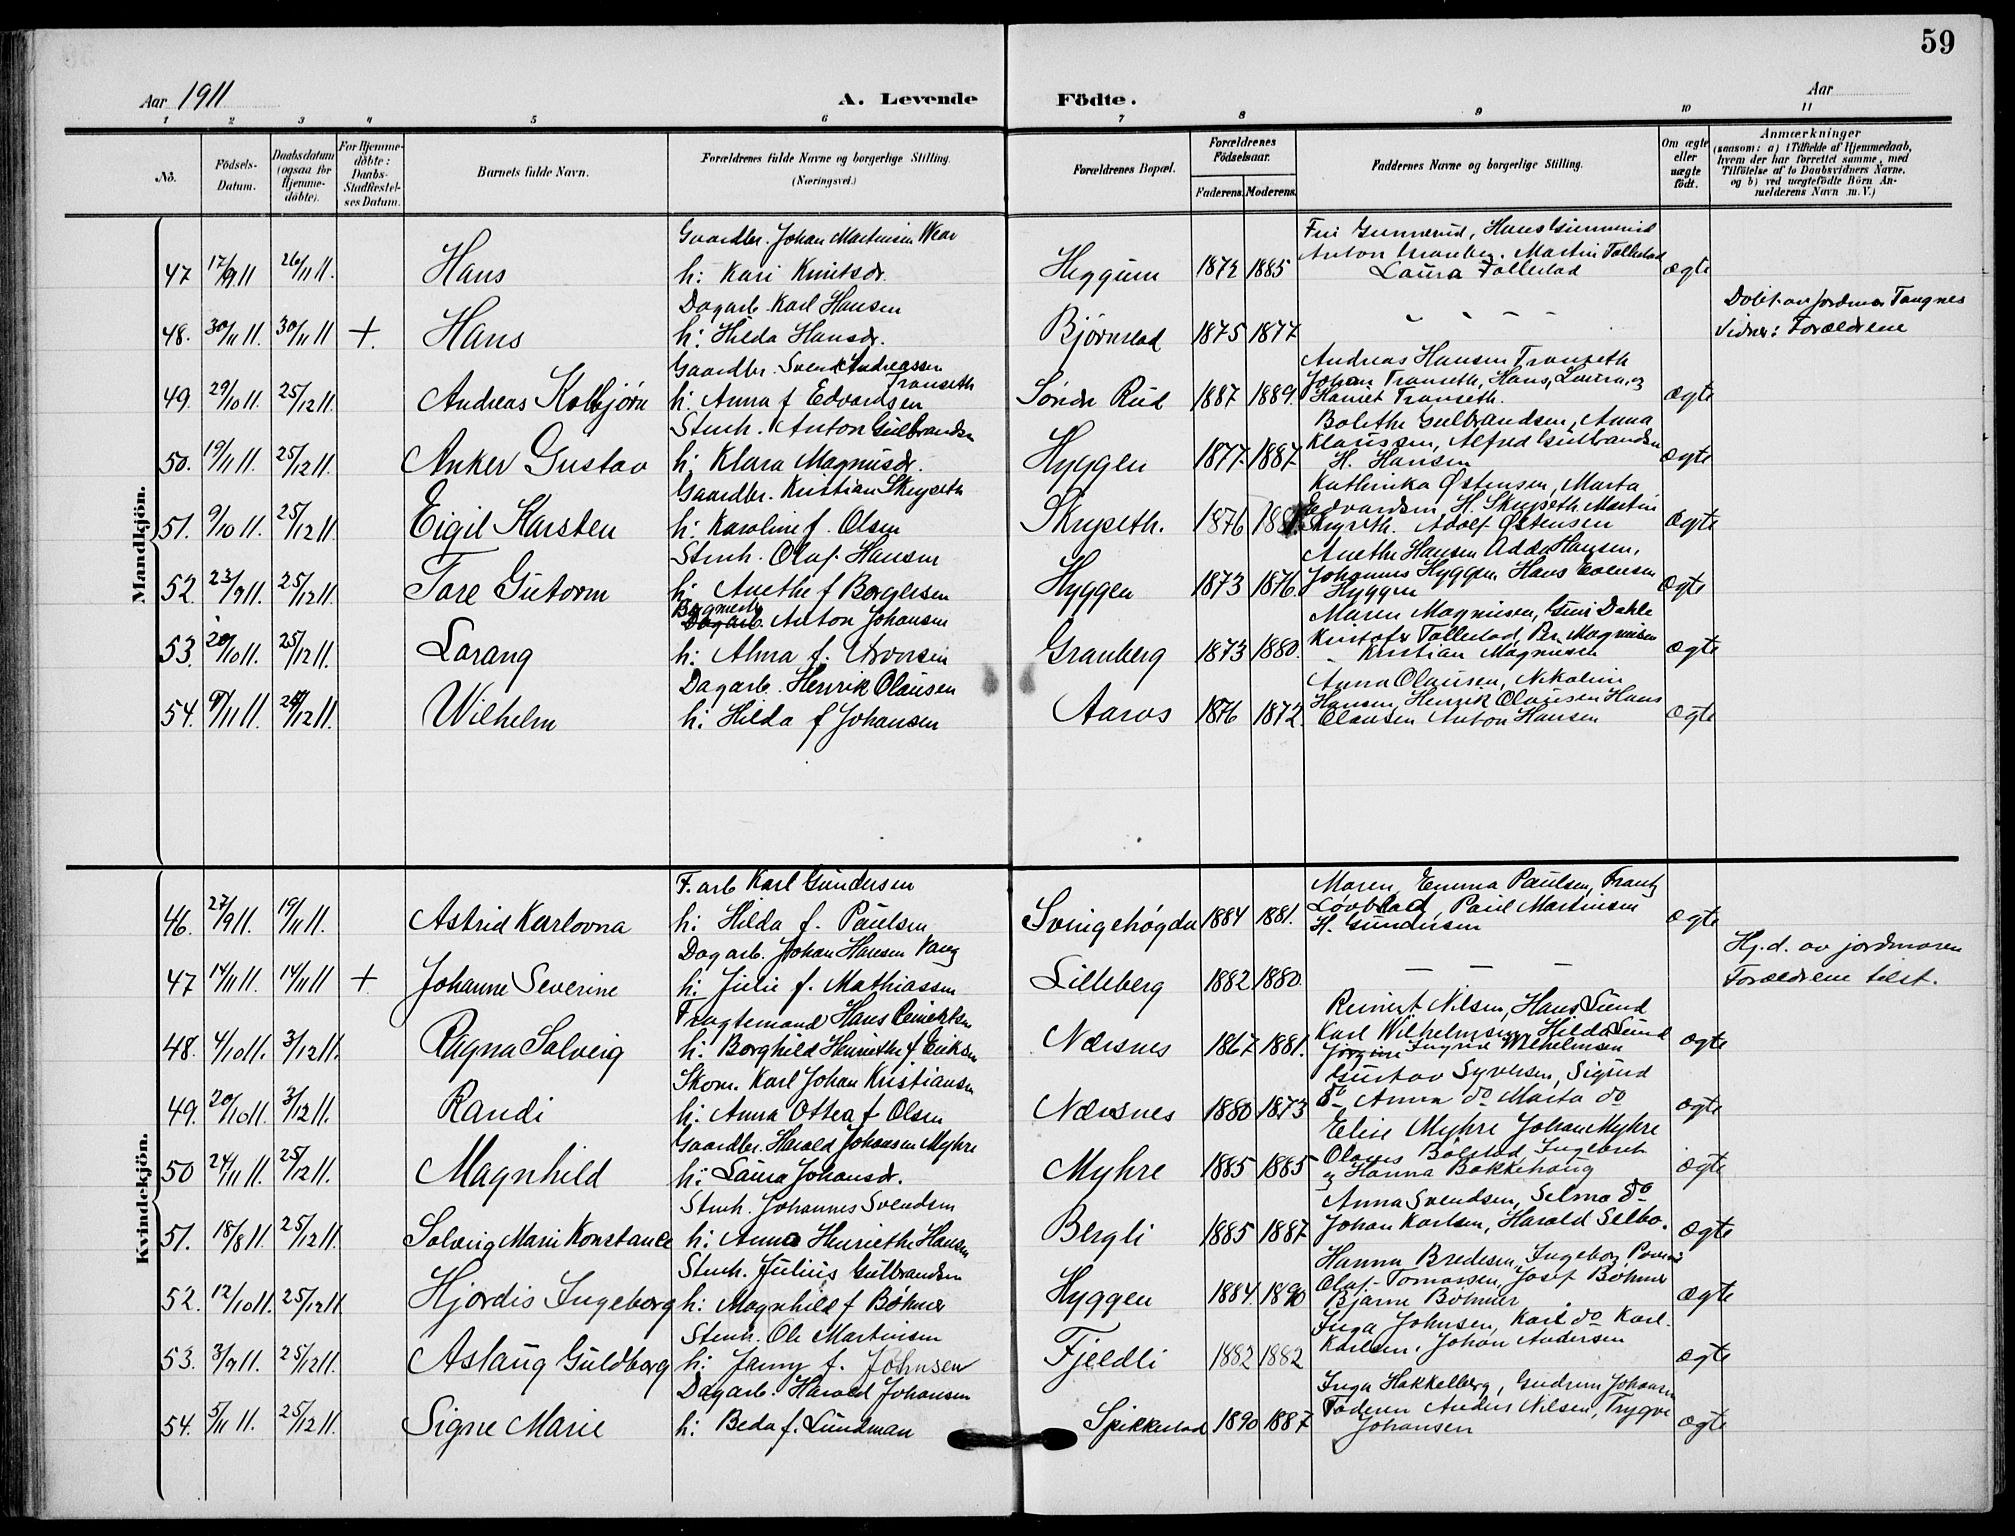 59
Aar 1911
A. Levende Födte.
Aar
1 2 3 4 5 6 7 8 9 10 11
No.
Födsels-Datum.
Daabsdatum (ogsaa for Hjemme-döbte).
For Hjemme-döbte: Daabs-Stadfæstel-ses Datum.
Barnets fulde Navn.
Forældrenes fulde Navne og borgerlige Stilling. (Næringsvei.)
Forældrenes Bopæl.
Forældrenes Födselsaar.
Faderens. Moderens.
Faddernes Navne og borgerlige Stilling.
Om ægte eller uægte födt.
Anmærkninger
(saasom: a) i Tilfælde af Hjemmedaab, hvem der har forrettet samme, med Tilföielse af to Daabsvidners Navne, og b) ved uægtefödte Börn An-melderens Navn m. V.)
Mandkjön.
Gaardbr. Johan Martinsen
47 17/9 11 26/11 11. Hans h: Kari Knutsdr. Heggum 1872 1885 Laura Follestad ægte
Dagarb. Karl Hansen
48. 30/11 11. 30/11 11 +. Hans h: Hilda Hansdr. Bjørnstad 1875 1877 Vidner: Forældrene
Gaardbr. Svend Andreassen Transeth
Andreas Hansen Transeth
49. 29/10 11. 25/12 11. Andreas Kolbjørn h: Anna f Edvardsen Søndr Rud 1887 1889. Johan Transeth, Hans, Laura, og Harriet Transeth. ægte
Stenh. Anton Gulbrandsen
Bolethe Gulbrandsen, Anna
50. 19/11 11. 25/12 11. Anker Gustav h: Klara Magnusdr. Hyggen 1877. 1887. Klaussen, Alfred Gulbrandsen H. Hansen ægte
Gaardbr. Kristian Skryseth
Kathinka Østensen, Marta
51. 9/10 11. 25/12 11. Eigil Karsten h: Karoline f. Olsen Skryseth. 1876 Edvardsen, H. Skryseth Martin Skryseth. Adolf Østensen ægte
Stenh. Olaf Hansen
Anethe Hansen Adda Hansen,
52. 23/9 11. 25/12 11. Tore Gutorm h: Anethe f Borgersen Hyggen 1873 1876. Johannes Hyggen, Hans Evensen Hyggen ægte
Dagarb. Anton Johansen
Maren Magnussen, Guri Dahle
53. 20/10 11. 25/12 11. Lorang h: Alma f. Iversen Granberg 1873 1880. Kristofer Follestad, Magnussen Kristian Magnussen ægte
Dagarb. Henrik Olausen
Anna Olausen, Nikoline
54. 9/11 11. 26/12 11. Wilhelm h: Hilda f Johansen Aaros 1876 1872 Hansen, Henrik Olausen Hans Olausen Anton Hansen ægte
Kvindekjön.
F. arb Karl Gundersen
Maren, Emma Paulsen, Frantz
46. 27/9 11. 19/11 11. Astrid Karlovna h: Hilda f. Paulsen Svingehøgda 1884 1881. Løvblad, Paul Martinsen H. Gundersen ægte
Dagarb. Johan Hansen
Hj.d. av jordmoren
47 14/11 11. 14/11 11 + Johanne Severine h: Julie f. Mathiassen Lilleberg 1882 1880. Forældrene tilst.
Fragtemand Hans Reinertsen
Reinert Nilsen, Hans Sund
48. 4/10 11. 3/12 11. Ragna Solveig h: Borghild Henriethe f Eriksen Nærsnes 1867 1881. Karl Wilhelmsen, Hilda Sund Jørgine Ingrid Wilhelmsen ægte
Skom. Karl Johan Kristiansen
Gustav Syversen, Sigurd
49. 20/10 11. 3/12 11. Randi h: Anna Othea f Olsen Nærsnes 1880 1873 do Anna do Marta do ægte
Gaardbr. Harald Johansen Myhre
Elise Myhre Johan Myhre
50 24/11 11. 25/12 11. Magnhild h: Laura Johansdr. Myhre 1885 1885 Olaves Bølstad, Ingebreth og Hanna Bakkehaug ægte
Stenh. Johannes Svendsen
Anna Svendsen, Selma do
51. 18/8 11. 25/12 11. Solveig Marie Konstance h: Anna Henriethe Hansen Bergli 1885 1887 Johan Karlsen, Harald Selbo. ægte
Stenh. Julius Gulbrandsen
Hanna Bredesen, Ingeborg
52. 12/10 11. 25/12 11. Hjørdis Ingeborg h: Magnhild f Bøhmer Hyggen 1884. 1890 Olaf Tomassen, Josef Bøhmer Bjarne Bøhmer ægte
Stenh. Ole Martinsen
Inga Johnsen, Karl do Karl
53. 3/9 11. 25/12 11. Aslaug Guldborg h: Jenny f. Johnsen Fjeldli 1882 1882 Karlsen, Johan Andersen ægte
Dagarb. Harald Johansen
Inga Hakkelberg, Gudrun Johansen
54. 5/11 11. 25/12 11. Signe Marie h: Beda f. Lundman Spikkestad 1890 1887 Faderen Anders Nilsen, Trygve Johansen ægte